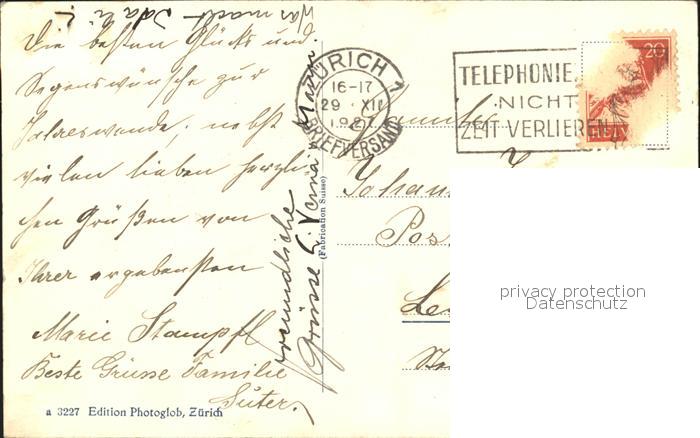 was macht Ida ? ?
Die besten Glücks und
Segenswünsche zur
Jahreswende, nebst
vielen lieben herzli-
chen Grüßen von
Ihrer ergebensten
Marie Stampfl
Beste Grüsse Familie
Suter.
freundliche
Grüsse E. Verna
a 3227 Edition Photoglob, Zürich
(Fabrication Suisse)
ZÜRICH 1
16-17
29 XII
BRIEFVERSAND
TELEPHONIE.
NICHT
ZEIT VERLIEREN
20
Familie
Johann
Pos
privacy protection
Datenschutz